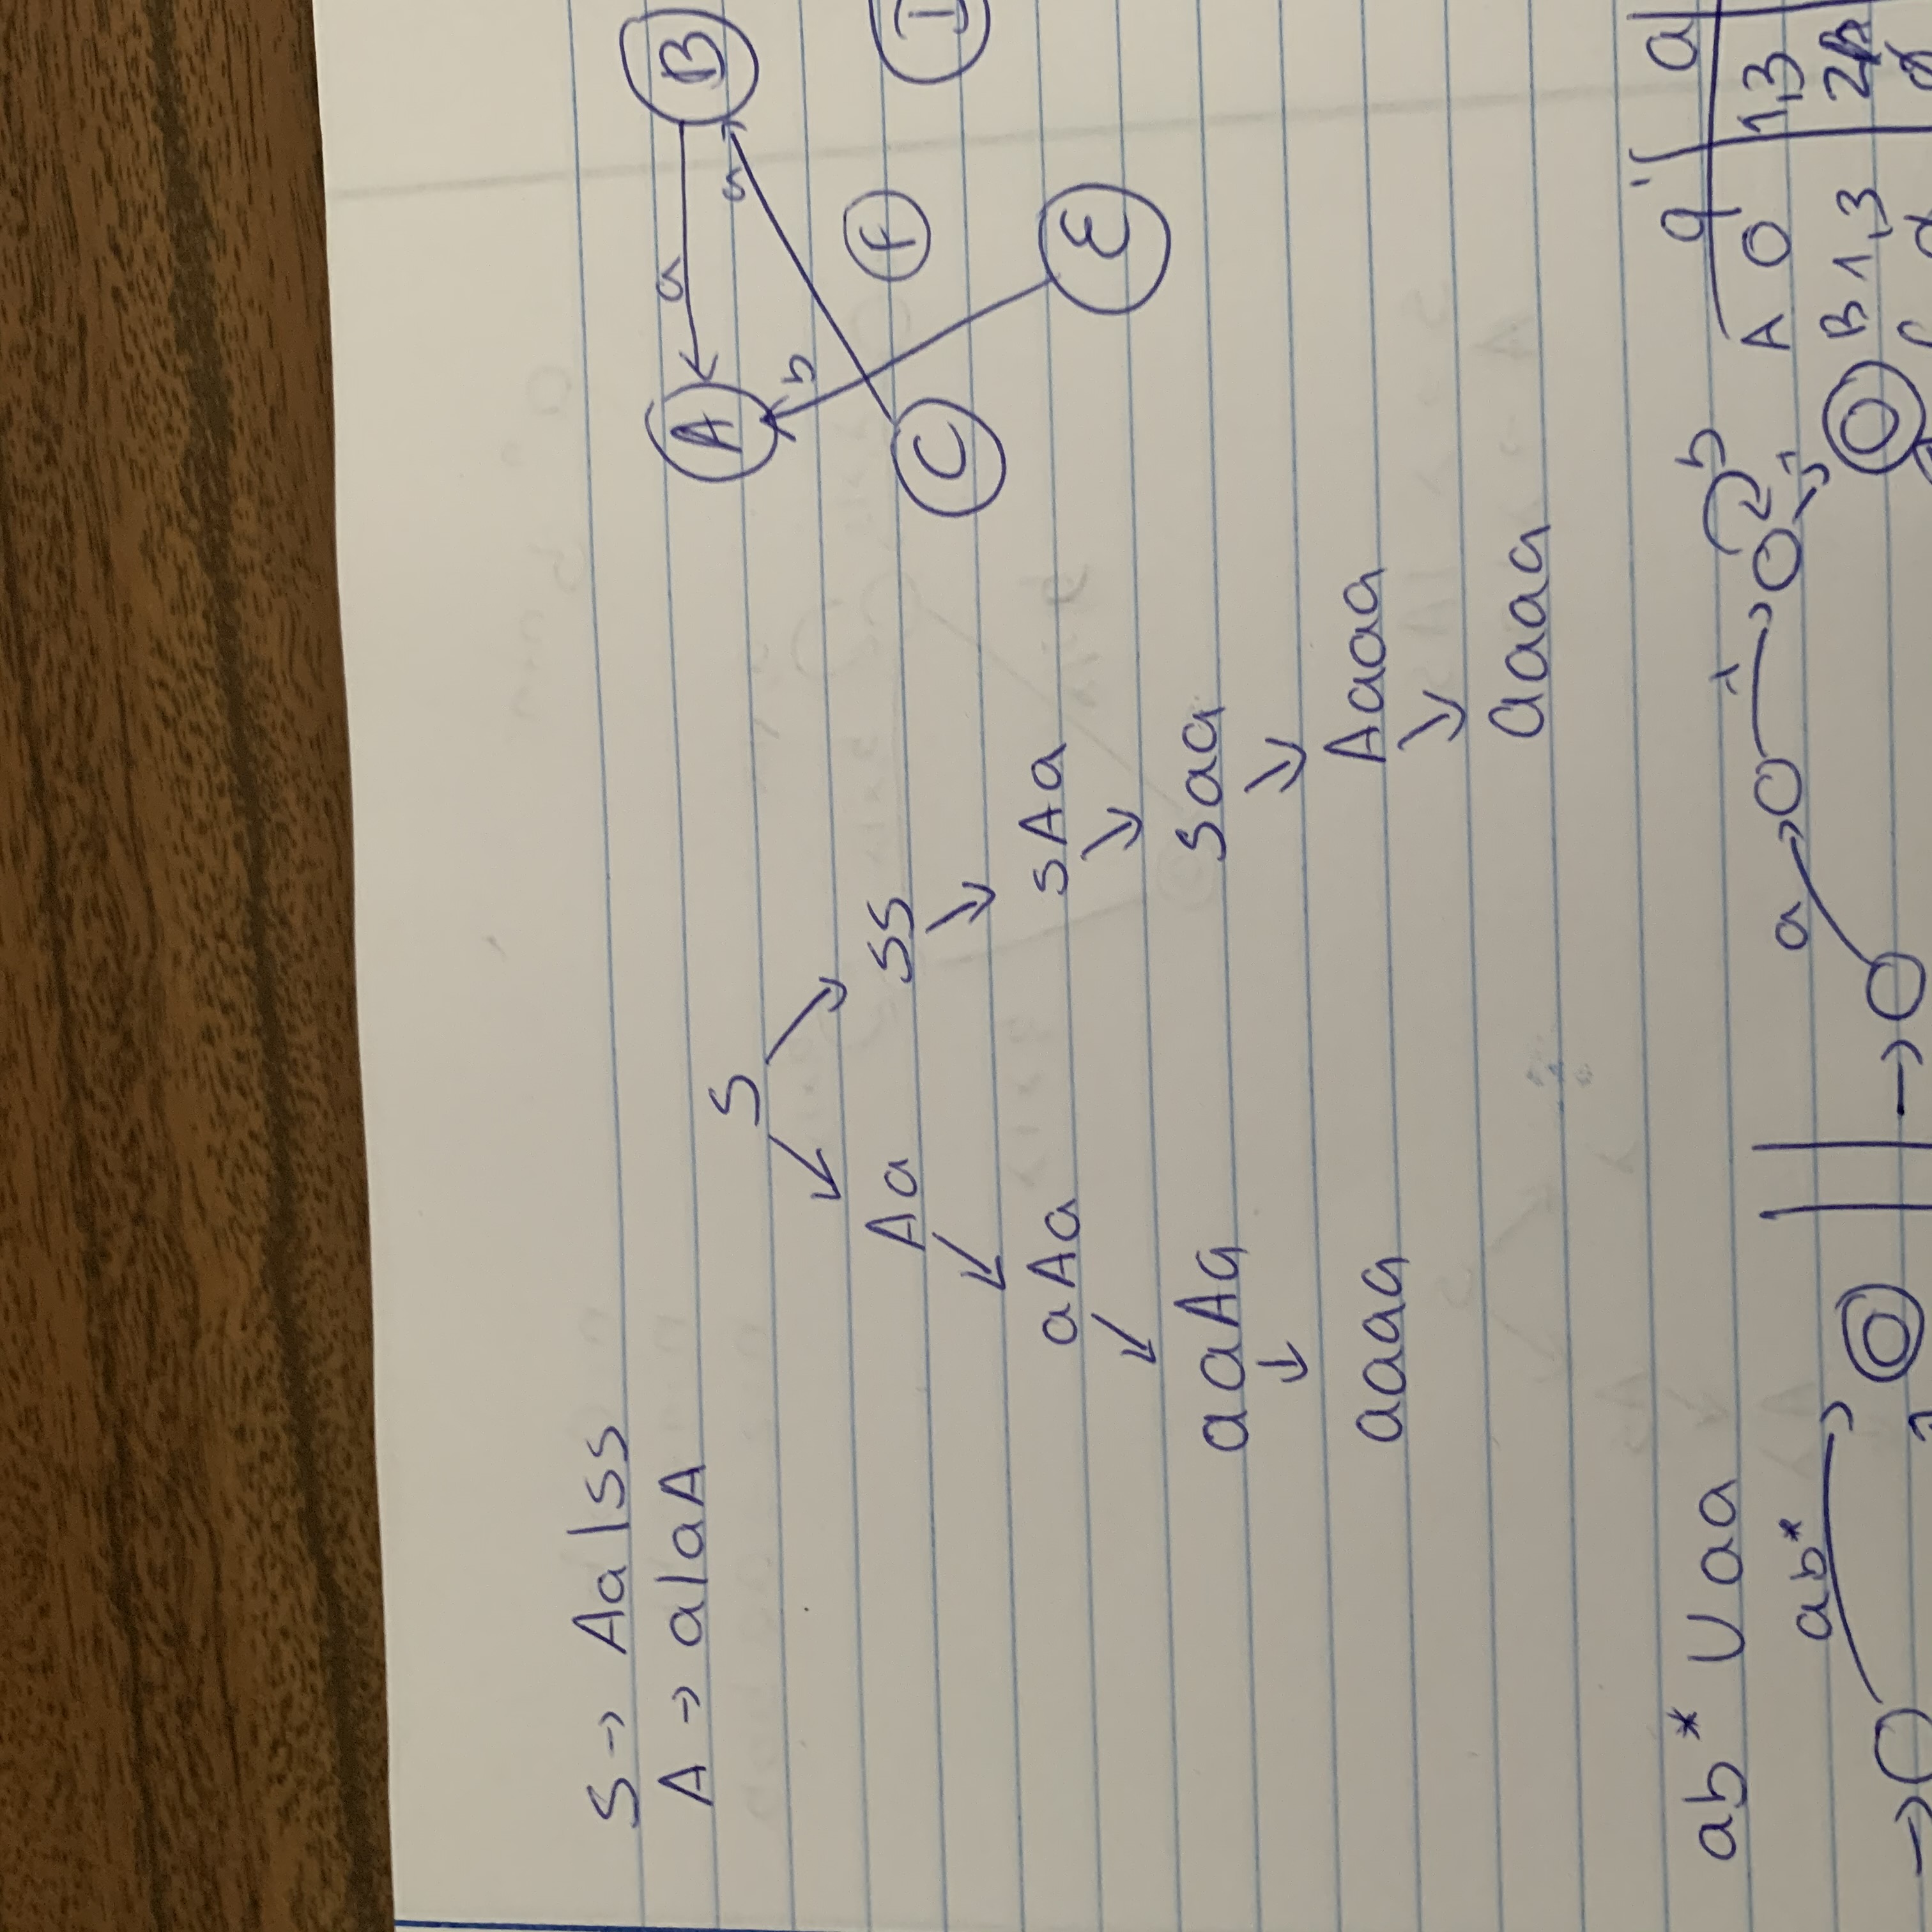 S → Aa | ss
A → a | aA
S
Aa ss
aAa sAa
aaAa saa
aaaa Aaaa
aaaa
A a B
a
b
F
C D
E
ab* U aa
ab*
a λ b λ
q' a
A 0 1,3
B 1,3